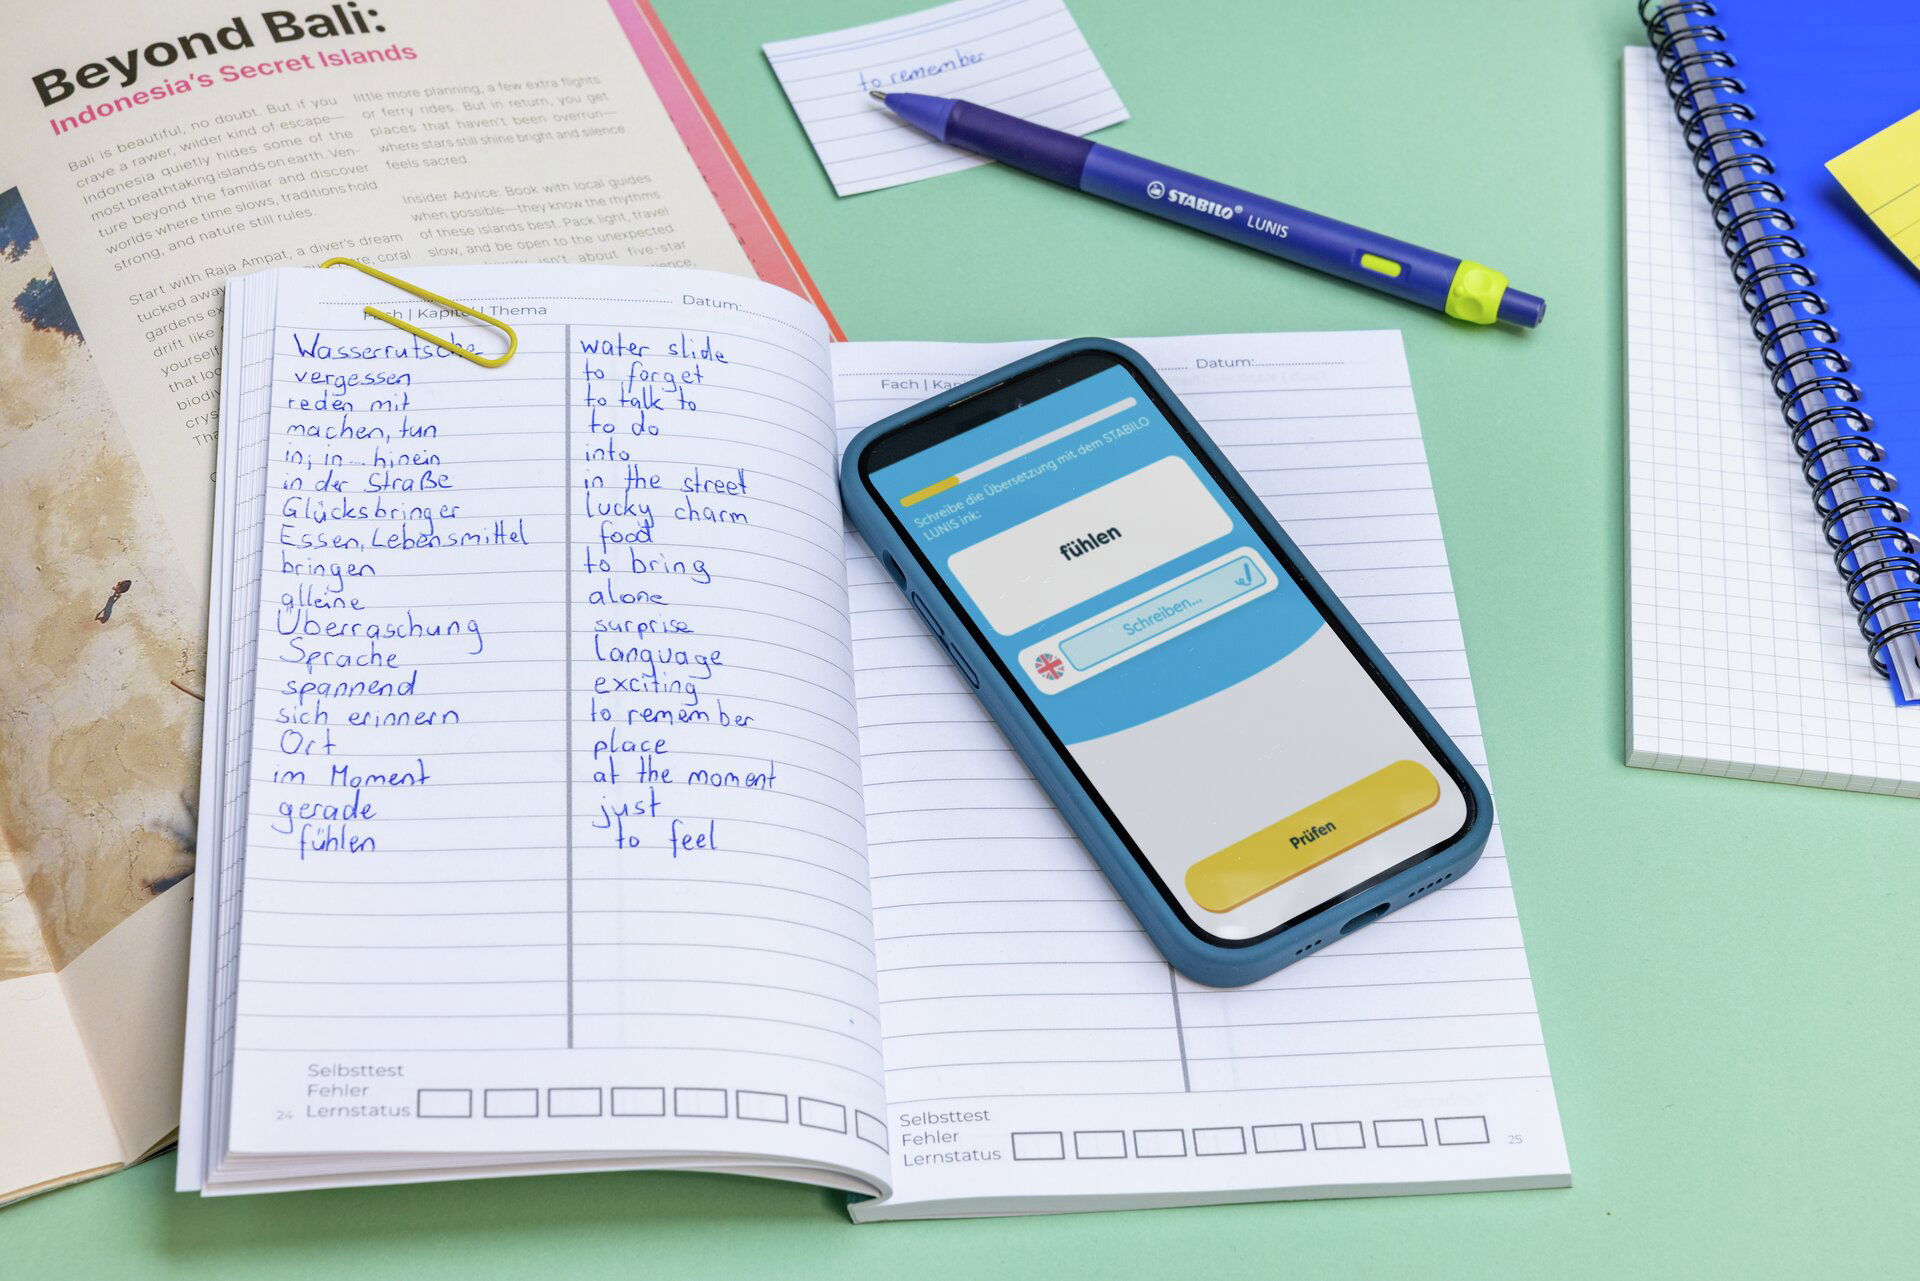 Beyond Bali:
Indonesia's Secret Islands
Bali is beautiful, no doubt. But if you
crave a rawer, wilder kind of escape—
Indonesia quietly hides some of the
most breathtaking islands on earth. Ven-
ture beyond the familiar and discover
worlds where time slows, traditions hold
strong, and nature still rules.
Start with Raja Ampat, a diver's dream
tucked away
gardens
drift like
yourself
that
cry
little more planning, a few extra flights
or ferry rides. But in return, you get
places that haven't been overrun—
where stars still shine bright and silence
feels sacred
Insider Advice: Book with local guides
when possible—they know the rhythms
of these islands best. Pack light, travel
slow, and be open to the unexpected
isn't about five-star
to remember
STABILO® LUNIS
Datum:
Fach | Kapitel | Thema
Wasserrutsche water slide
vergessen to forget
reden mit to talk to
machen, tun to do
in; in... hinein into
in der Straße in the street
Glücksbringer lucky charm
Essen, Lebensmittel food
bringen to bring
alleine alone
Überraschung surprise
Sprache language
spannend exciting
sich erinnern to remember
Ort place
im Moment at the moment
gerade just
fühlen to feel
Selbsttest
Fehler
Lernstatus
24
Datum:
Fach | Kap
Schreibe die Übersetzung mit dem STABILO
LUNIS ink:
fühlen
Schreiben...
Prüfen
Selbsttest
Fehler
Lernstatus
25